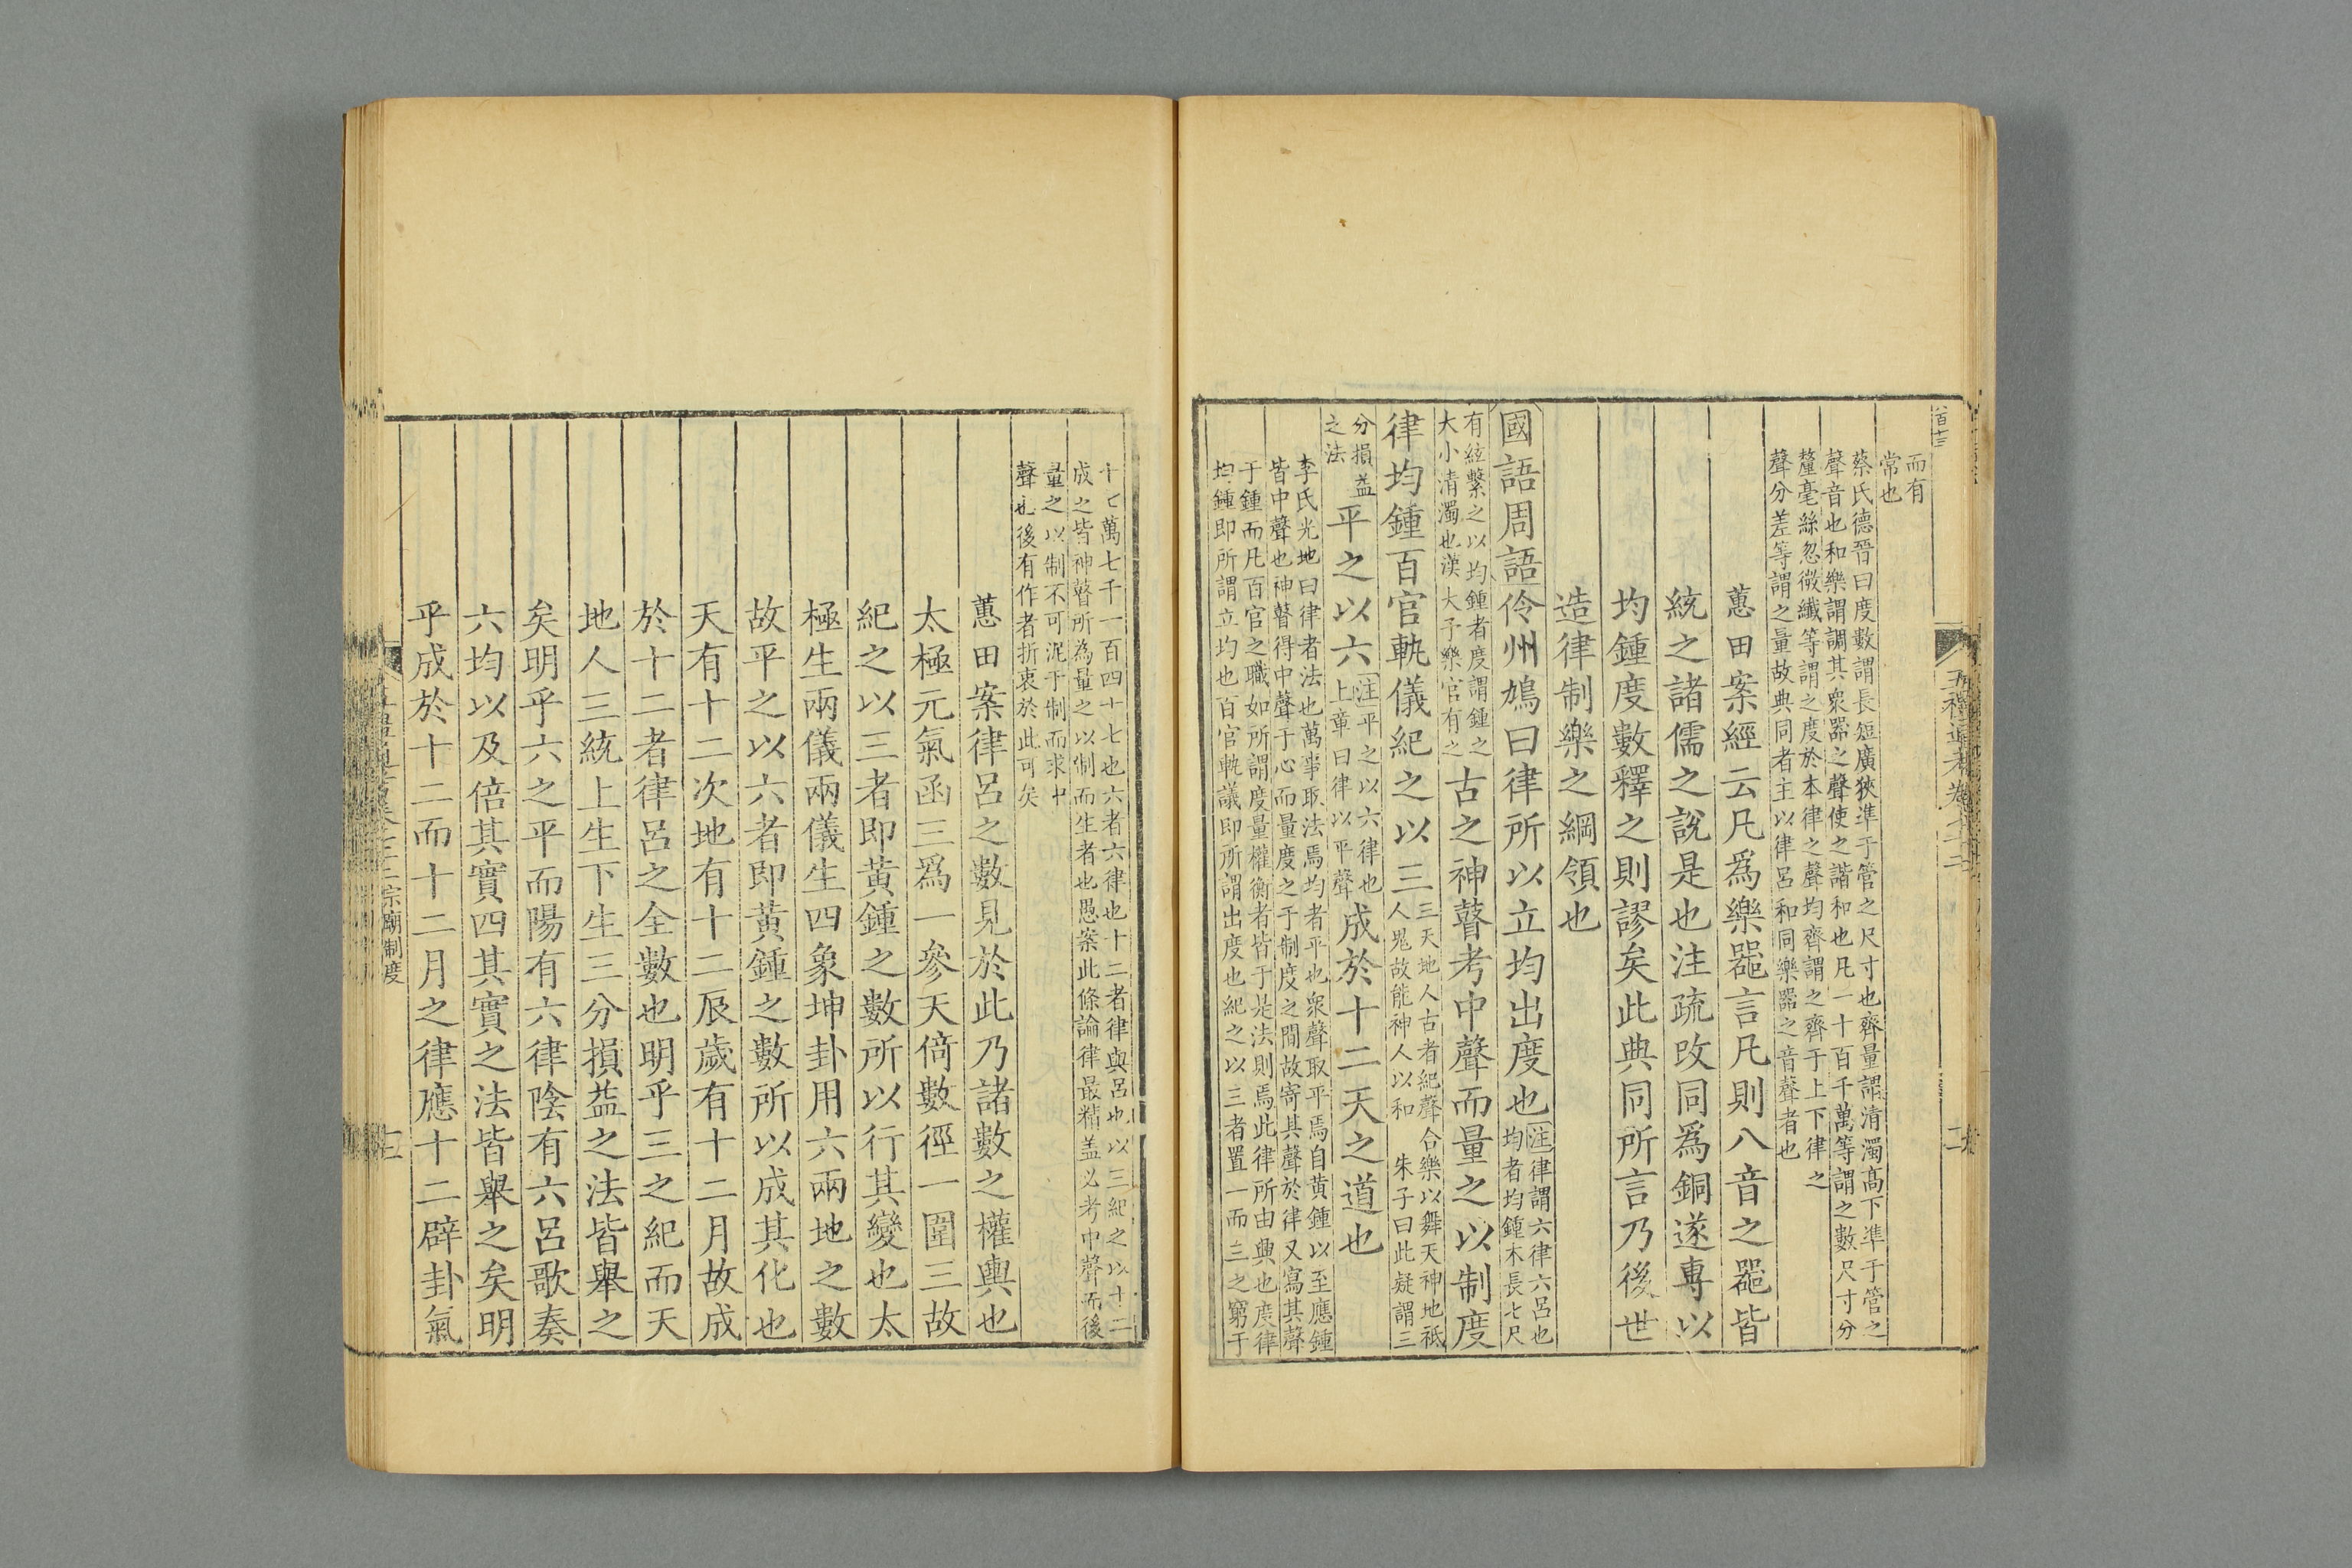 而有
常也
蔡氏德晉曰度數謂長短廣狹準于管之尺寸也齊量謂清濁高下準于管之
聲音也和樂謂調其衆器之聲使之諧和也凡一十百千萬等謂之數尺寸分
釐毫絲忽微纖等謂之度於本律之聲均齊謂之齊于上下律之
聲分差等謂之量故典同者主以律呂和同樂器之音聲者也
蕙田案經云凡爲樂器言凡則八音之器皆
統之諸儒之說是也注疏改同爲銅遂專以
均鍾度數釋之則謬矣此典同所言乃後世
造律制樂之綱領也
國語周語伶州鳩曰律所以立均出度也
注律謂六律六呂也
均者均鍾木長七尺
有絃繫之以均鍾者度謂鍾之
大小清濁也漢大予樂官有之
古之神瞽考中聲而量之以制度
律均鍾百官軌儀紀之以三
三天地人古者紀聲合樂以舞天神地祗
人鬼故能神人以和　朱子曰此疑謂三
分損益
之法
平之以六
注平之以六律也
上章曰律以平聲
成於十二天之道也
李氏光地曰律者法也萬事取法焉均者平也衆聲取平焉自黄鍾以至應鍾
皆中聲也神瞽得中聲于心而量度之于制度之間故寄其聲於律又寫其聲
于鍾而凡百官之職如所謂度量權衡者皆于是法則焉此律所由興也度律
均鍾即所謂立均也百官軌議即所謂出度也紀之以三者置一而三之窮于
十七萬七千一百四十七也六者六律也十二者律與呂也以三紀之以十二
成之皆神瞽所為量之以制而生者也愚案此條論律最精盖必考中聲而後
量之以制不可泥于制而求中
聲也後有作者折衷於此可矣
蕙田案律呂之數見於此乃諸數之權輿也
太極元氣函三爲一參天倚數徑一圍三故
紀之以三者即黃鍾之數所以行其變也太
極生兩儀兩儀生四象坤卦用六兩地之數
故平之以六者即黃鍾之數所以成其化也
天有十二次地有十二辰歲有十二月故成
於十二者律呂之全數也明乎三之紀而天
地人三統上生下生三分損益之法皆舉之
矣明乎六之平而陽有六律陰有六呂歌奏
六均以及倍其實四其實之法皆舉之矣明
乎成於十二而十二月之律應十二辟卦氣
宗廟制度